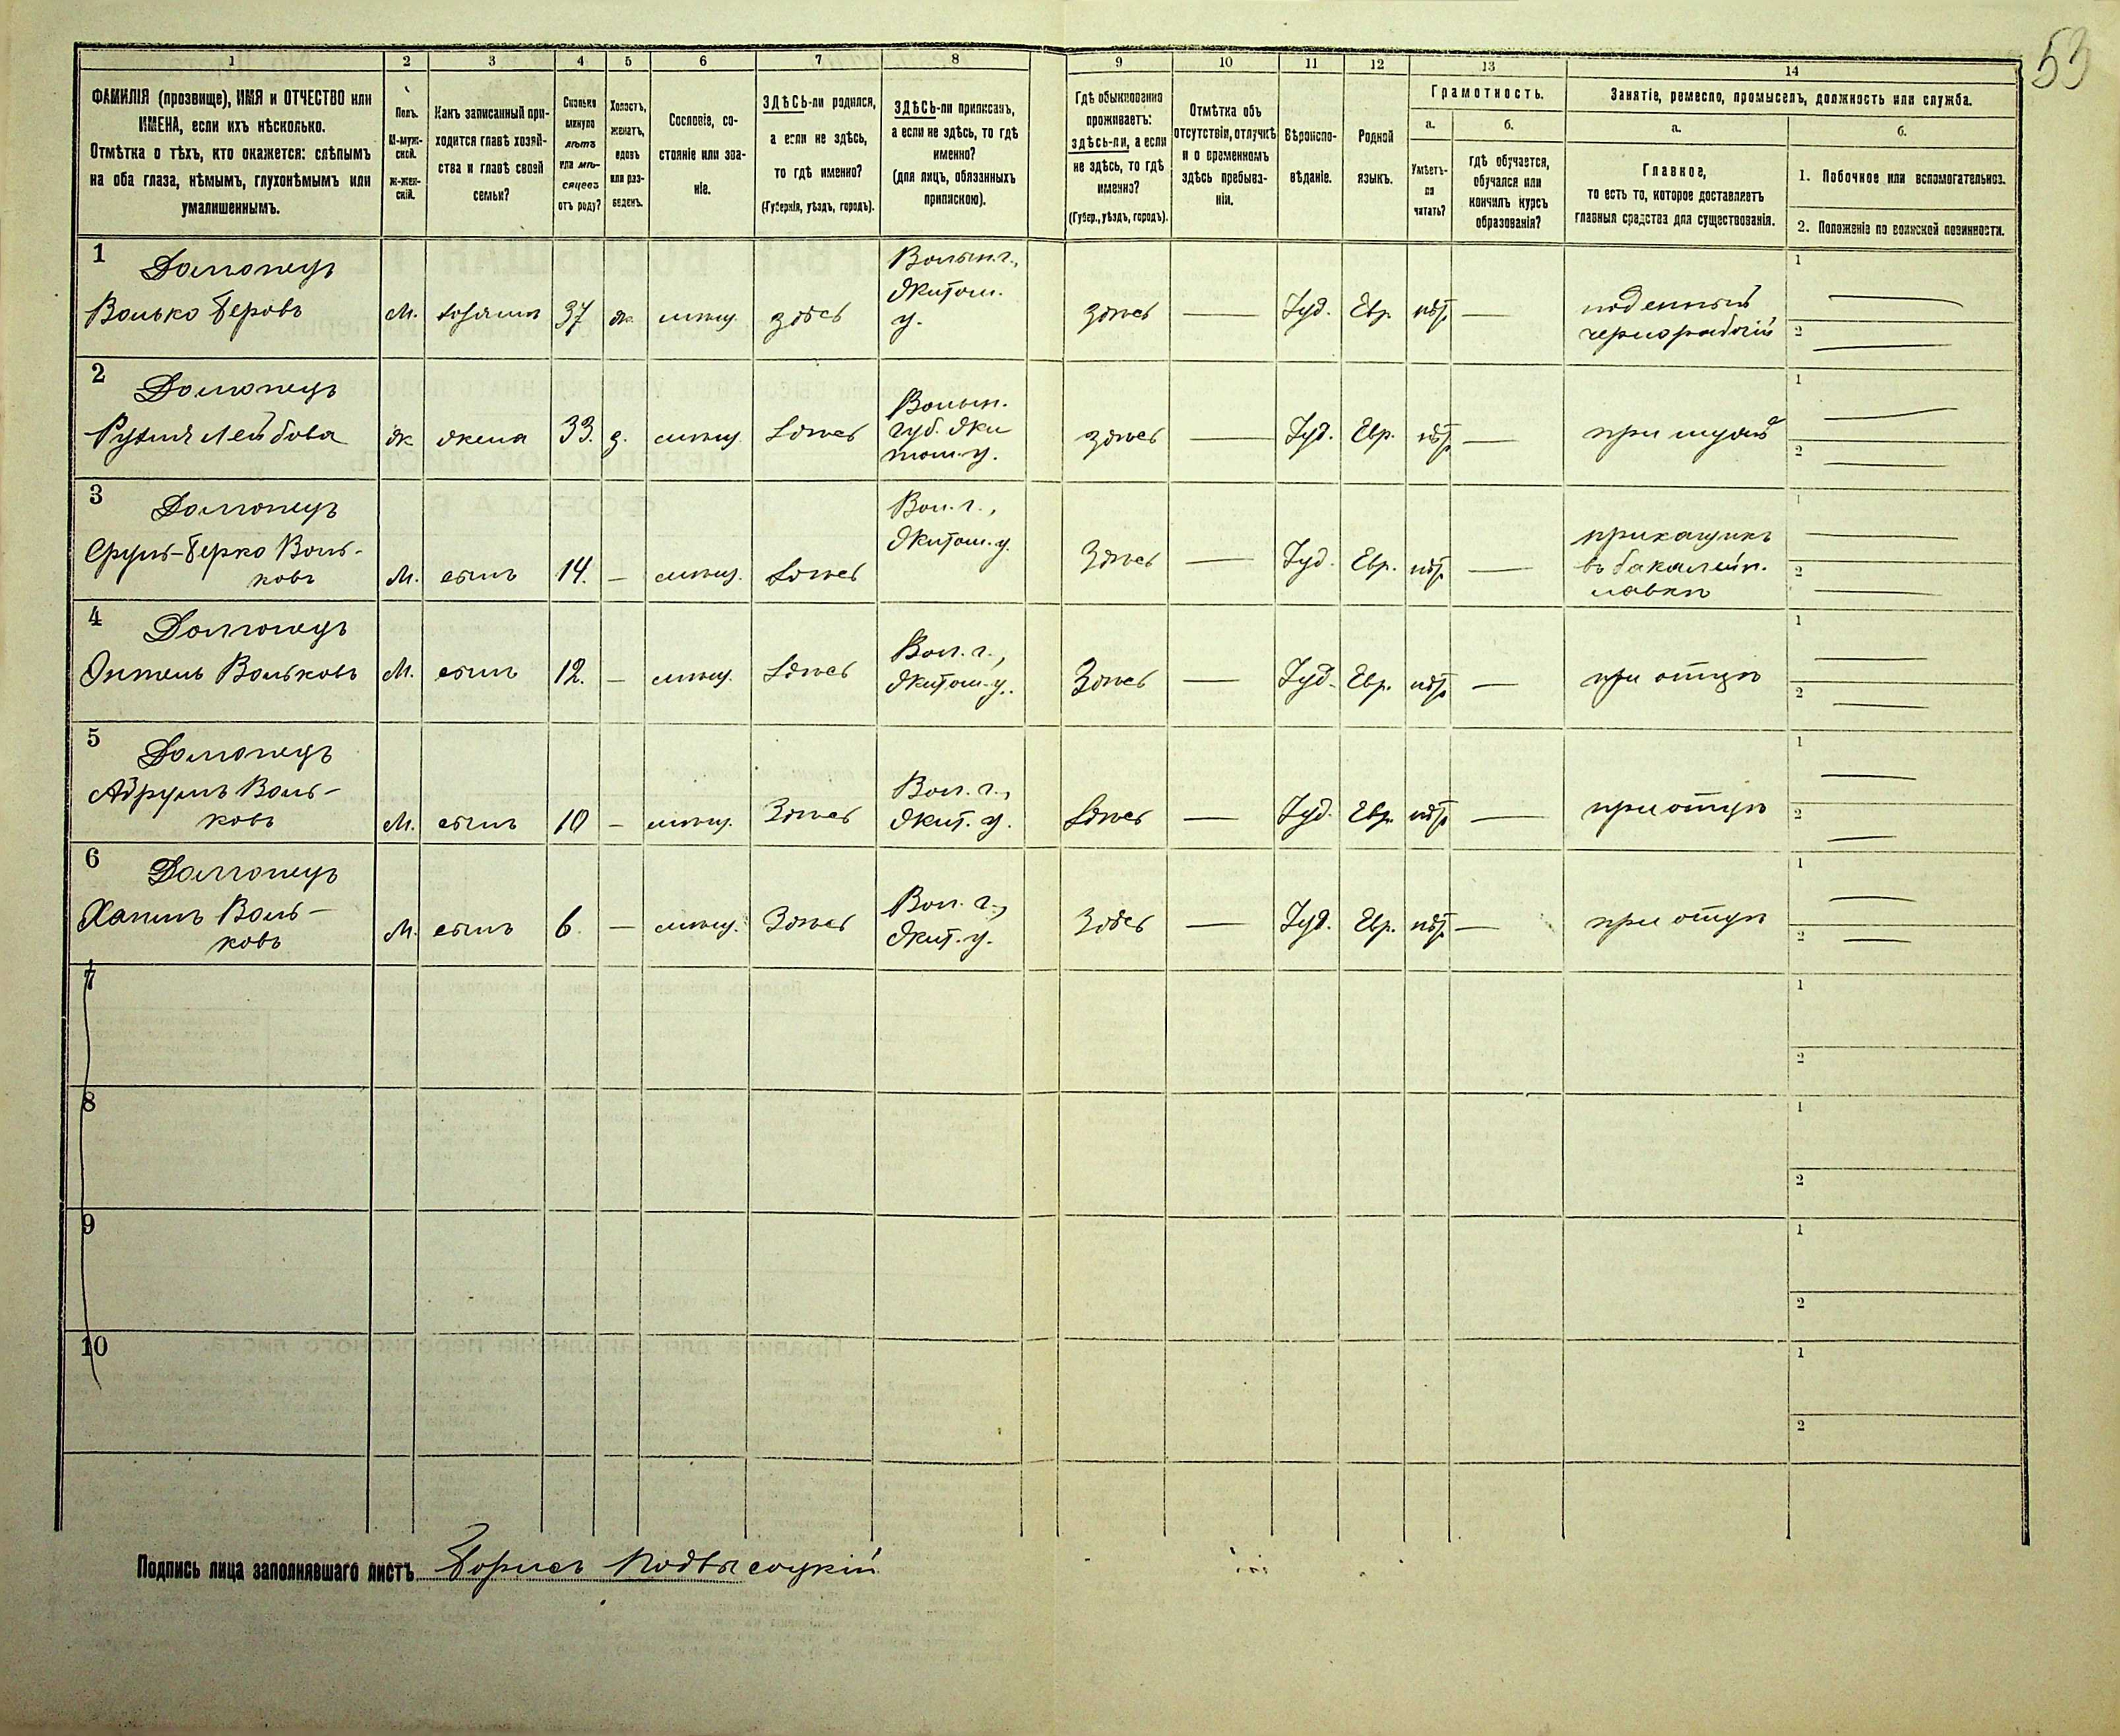 53
1 2 3 4 5 6 7 8 9 10 11 12 13 14
ФАМИЛІЯ (прозвище), ИМЯ и ОТЧЕСТВО или
ИМЕНА, если ихъ нѣсколько.
Отмѣтка о тѣхъ, кто окажется: слѣпымъ
на оба глаза, нѣмымъ, глухонѣмымъ или
умалишеннымъ.
Полъ.
М-муж-
ской.
Ж-жен-
скій.
Какъ записанный при-
ходится главѣ хозяй-
ства и главѣ своей
семьи?
Сколько
минуло
лѣтъ
или мѣ-
сяцевъ
отъ роду?
Холостъ,
женатъ,
вдовъ
или раз-
веденъ.
Сословіе, со-
стояніе или зва-
ніе.
ЗДѢСЬ-ли родился,
а если не здѣсь,
то гдѣ именно?
(Губернія, уѣздъ, городъ).
ЗДѢСЬ-ли приписанъ,
а если не здѣсь, то гдѣ
именно?
(для лицъ, обязанныхъ
припискою).
Гдѣ обыкновенно
проживаетъ:
здѣсь-ли, а если
не здѣсь, то гдѣ
именно?
(Губер., уѣздъ, городъ).
Отмѣтка объ
отсутствіи, отлучкѣ
и о временномъ
здѣсь пребыва-
ніи.
Вѣроиспо-
вѣданіе.
Родной
языкъ.
Грамотность.
а.
Умѣетъ-
ли
читать?
б.
гдѣ обучается,
обучался или
кончилъ курсъ
образованія?
Занятіе, ремесло, промыселъ, должность или служба.
а.
Главное,
то есть то, которое доставляетъ
главныя средства для существованія.
б.
1. Побочное или вспомогательное.
2. Положеніе по воинской повинности.
1
Волько Беровъ
М. хозяинъ 37 ж. мѣщ. здѣсь
Волын. г.,
Житом.
у.
здѣсь — Іуд. Евр. нѣт —
поденный
чернорабочій
1 —
2 —
2
Лейбова
ж жена 33. з. мѣщ. Здѣсь
Волын.
губ. Жи
том. у.
здѣсь — Іуд. Евр. нѣт —
при мужѣ
1 —
2 —
3
Сруль-Берко Воль-
ковъ
М. сынъ 14. — мѣщ. Здѣсь
Вол. г.,
Житом. у.
Здѣсь — Іуд. Евр. нѣт —
прикащикъ
въ бакалейн.
лавкѣ
1 —
2 —
4
Вольковъ
М. сынъ 12. — мѣщ. Здѣсь
Вол. г.,
Житом. у.
Здѣсь — Іуд. Евр. нѣт —
при отцѣ
1 —
2 —
5
Абрумъ Воль-
ковъ
М. сынъ 10 — мѣщ. Здѣсь
Вол. г.,
Жит. у.
Здѣсь — Іуд. Евр. нѣт —
при отцѣ
1 —
2 —
6
Воль-
ковъ
М. сынъ 6. — мѣщ. Здѣсь
Вол. г.,
Жит. у.
Здѣсь — Іуд. Евр. нѣт —
при отцѣ
1 —
2 —
7
1
2
8
1
2
9
1
2
10
1
2
Подпись лица заполнявшаго листъ Борисъ Подвысоцкій